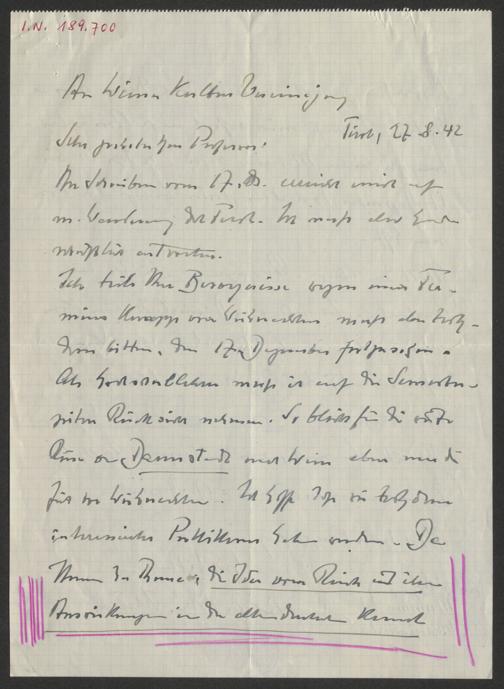 I.N. 189.700
An Wiener Kultur Vereinigung
Tirol, 27.8.42
Sehr geehrter Herr Professor!
Ihr Schreiben vom 17. ds. erreicht mich auf
m. Wanderung durch Tirol. Ich muss aber
antworten.
Ich teile Ihre Besorgnisse wegen eines Ter-
mines knapp vor Weihnachten muss aber trotz-
dem bitten, den 17ten Dezember festzusetzen.
Als Hochschullehrer muss ich auf die Semester-
zeiten Rücksicht nehmen. So bleibt für die weite
Reise von Darmstadt nach Wien eben nur die
Zeit vor Weihnachten. Ich hoffe dass wir trotzdem
interessiertes Publikum haben werden. Das
Thema : die Idee vom Reich und ihre
Auswirkungen in der altdeutschen Kunst